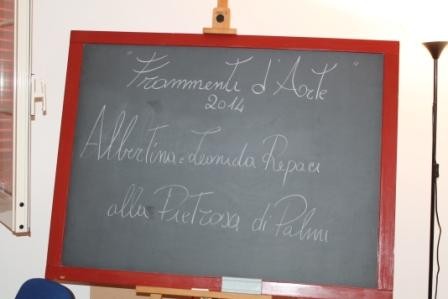 "Frammenti d'Arte"
2014
Albertina e Leonida Repaci
alla Pietrosa di Palmi